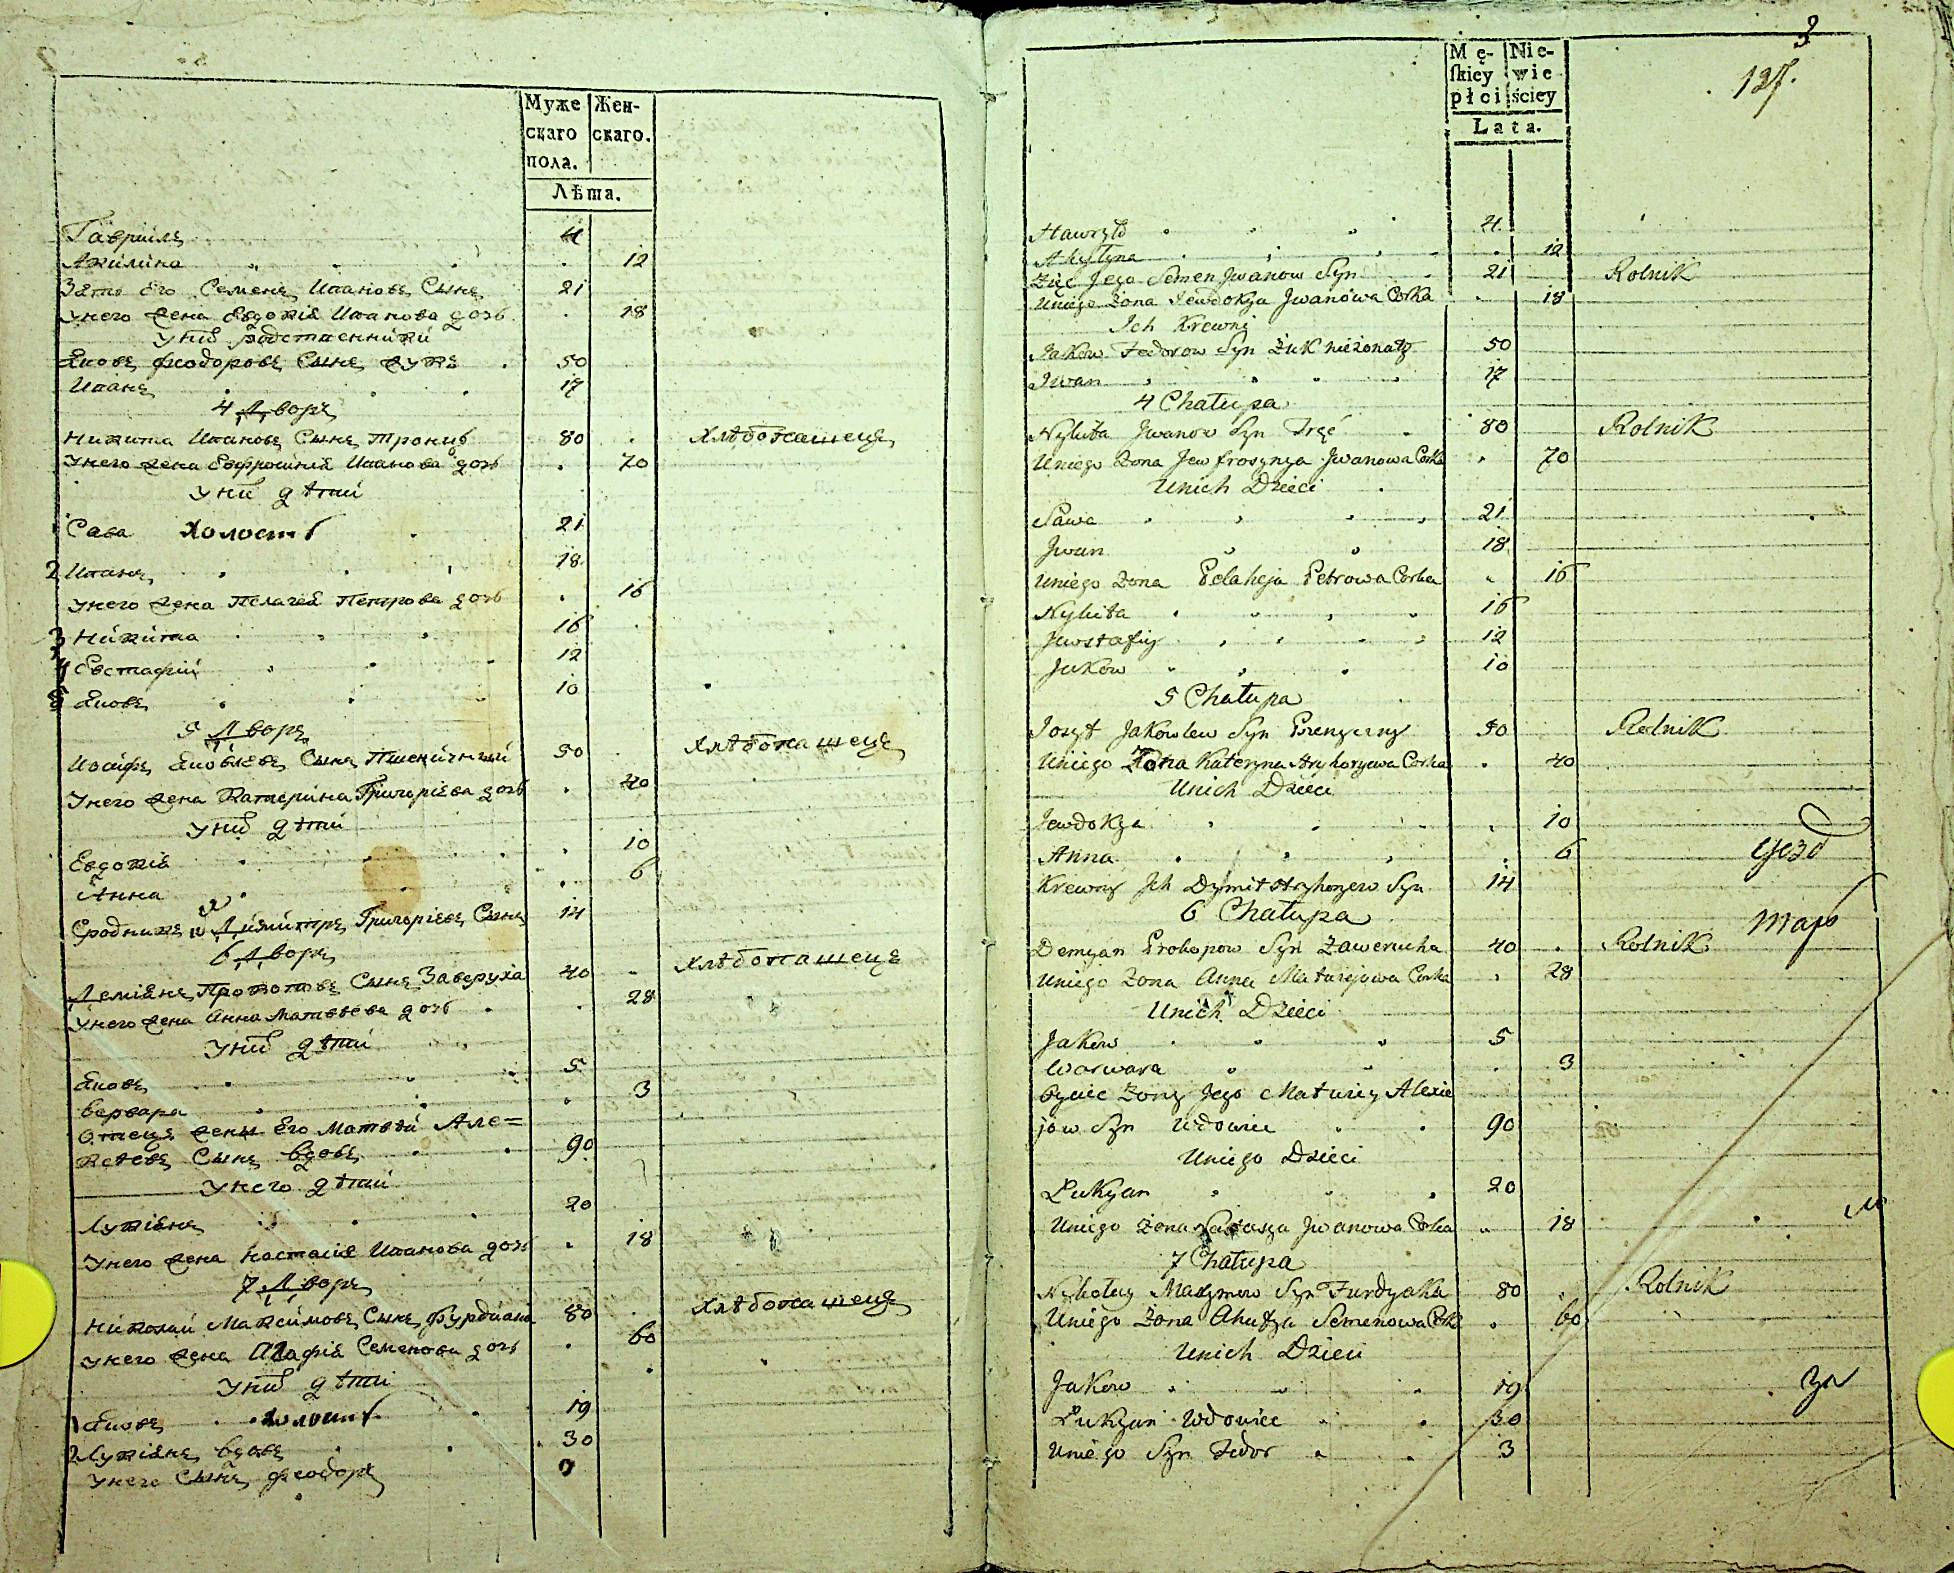 Муже
скаго
пола.
Жен-
скаго.
Лѣта.
Гавриилъ 4
Акилина 12
Зять Его Семенъ Ивановъ Сынъ 21
Унего жена Евдокія Иванова дочь 18
Уних родственники
Яковъ Феодоровъ Сынъ Жукъ 50
Иванъ 17
4 Дворъ
Никита Ивановъ Сынъ 80 Хлѣбопашецъ
Унего жена Евфросинія Иванова дочь 70
Уних дѣти
1 Сава холостъ 21
2 Иванъ 18
Унего жена Пелагея Петрова дочь 16
3 Никита 16
4 Евстафій 12
5 Яковъ 10
5 Дворъ
Иосифъ Яковлевъ Сынъ Пшеничный 50 Хлѣбопашецъ
Унего жена Катерина Григоріева дочь 40
Уних дѣти
Евдокія 10
Анна 6
Сродникъ Димитръ Григоріевъ Сынъ 14
6 Дворъ
Деміянъ Прокоповъ Сынъ Заверуха 40 Хлѣбопашецъ
Унего жена Анна Матвѣева дочь 28
Уних дѣти
Яковъ 5
Варвара 3
Отецъ жены Его Матвѣй Але=
ксѣевъ Сынъ вдовъ 90
Унего дѣти
Лукіянъ 20
Унего жена Настасія Иванова дочь 18
7 Дворъ
Николай Максимовъ Сынъ Фурдіака 80 Хлѣбопашецъ
Унего жена Агафія Семенова дочь 60
Уних дѣти
1 Яковъ холостъ 19
2 Лукіянъ вдовъ 30
Унего Сынъ Феодоръ
3
137.
Mę-
skiey
płci
Nie-
wie
ściey
Lata.
Hawryło 4
Akylyna 12
Zięć Jego Semen Jwanow Syn 21 Rolnik
Uniego Zona Jewdokya Jwanowa Corka 18
Ich Krewni
Jakow Fedorow Syn Żuk nieżonaty 50
Jwan 17
4 Chałupa
Nykita Jwanow Syn 80 Rolnik
Uniego Zona Jewfrosynya Jwanowa Corka 70
Unich Dzieci
Sawa 21
Jwan 18
Uniego Zona Pelaheja Petrowa Corka 16
Nykita 16
Jewstafiy 12
Jakow 10
5 Chałupa
Josyf Jakowlew Syn Pszenyczny 50 Rolnik
Uniego Zona Kateryna Hryhoryewa Corka 40
Unich Dzieci
Jewdokya 10
Anna 6
Krewny Jch Dymitr Hryhoryew Syn 14
6 Chałupa
Demyan Prokopow Syn Zawerucha 40 Rolnik
Uniego Zona Anna Matwiejowa Corka 28
Unich Dzieci
Jakow 5
Warwara 3
Oyciec Zony Jego Matwiey Alexie
jow Syn Wdowiec 90
Uniego Dzieci
Łukyan 20
Uniego Zona Nastasya Jwanowa Corka 18
7 Chałupa
Nykołay Maxymow Syn Furdyaka 80 Rolnik
Uniego Zona Ahafya Semenowa Corka 60
Unich Dzieci
Jakow 19
Łukyan Wdowiec 30
Uniego Syn Fedor 3